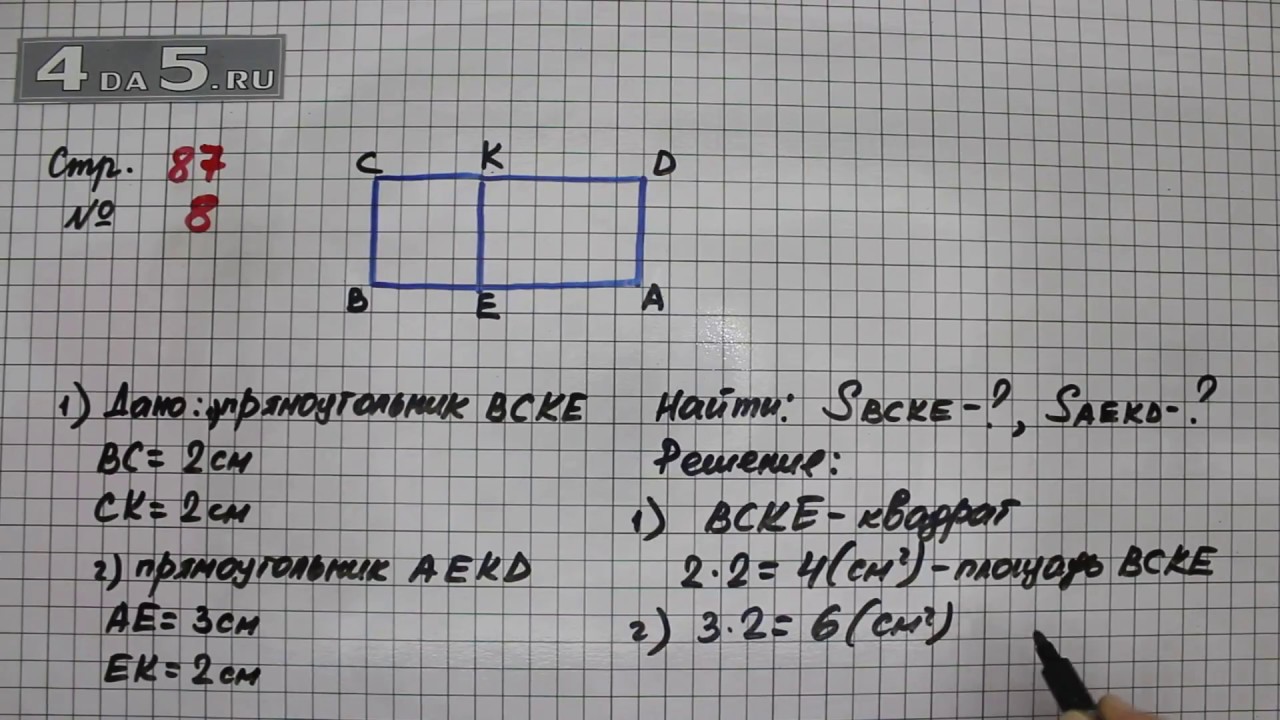 4DA5.RU
Стр. 87
№ 8
C K D
B E A
1) Дано: прямоугольник BCKE
BC = 2 см
CK = 2 см
2) прямоугольник AEKD
AE = 3 см
EK = 2 см
Найти: SBCKE - ?, SAEKD - ?
Решение:
1) BCKE - квадрат
2 · 2 = 4 (см²) - площадь BCKE
2) 3 · 2 = 6 (см²)